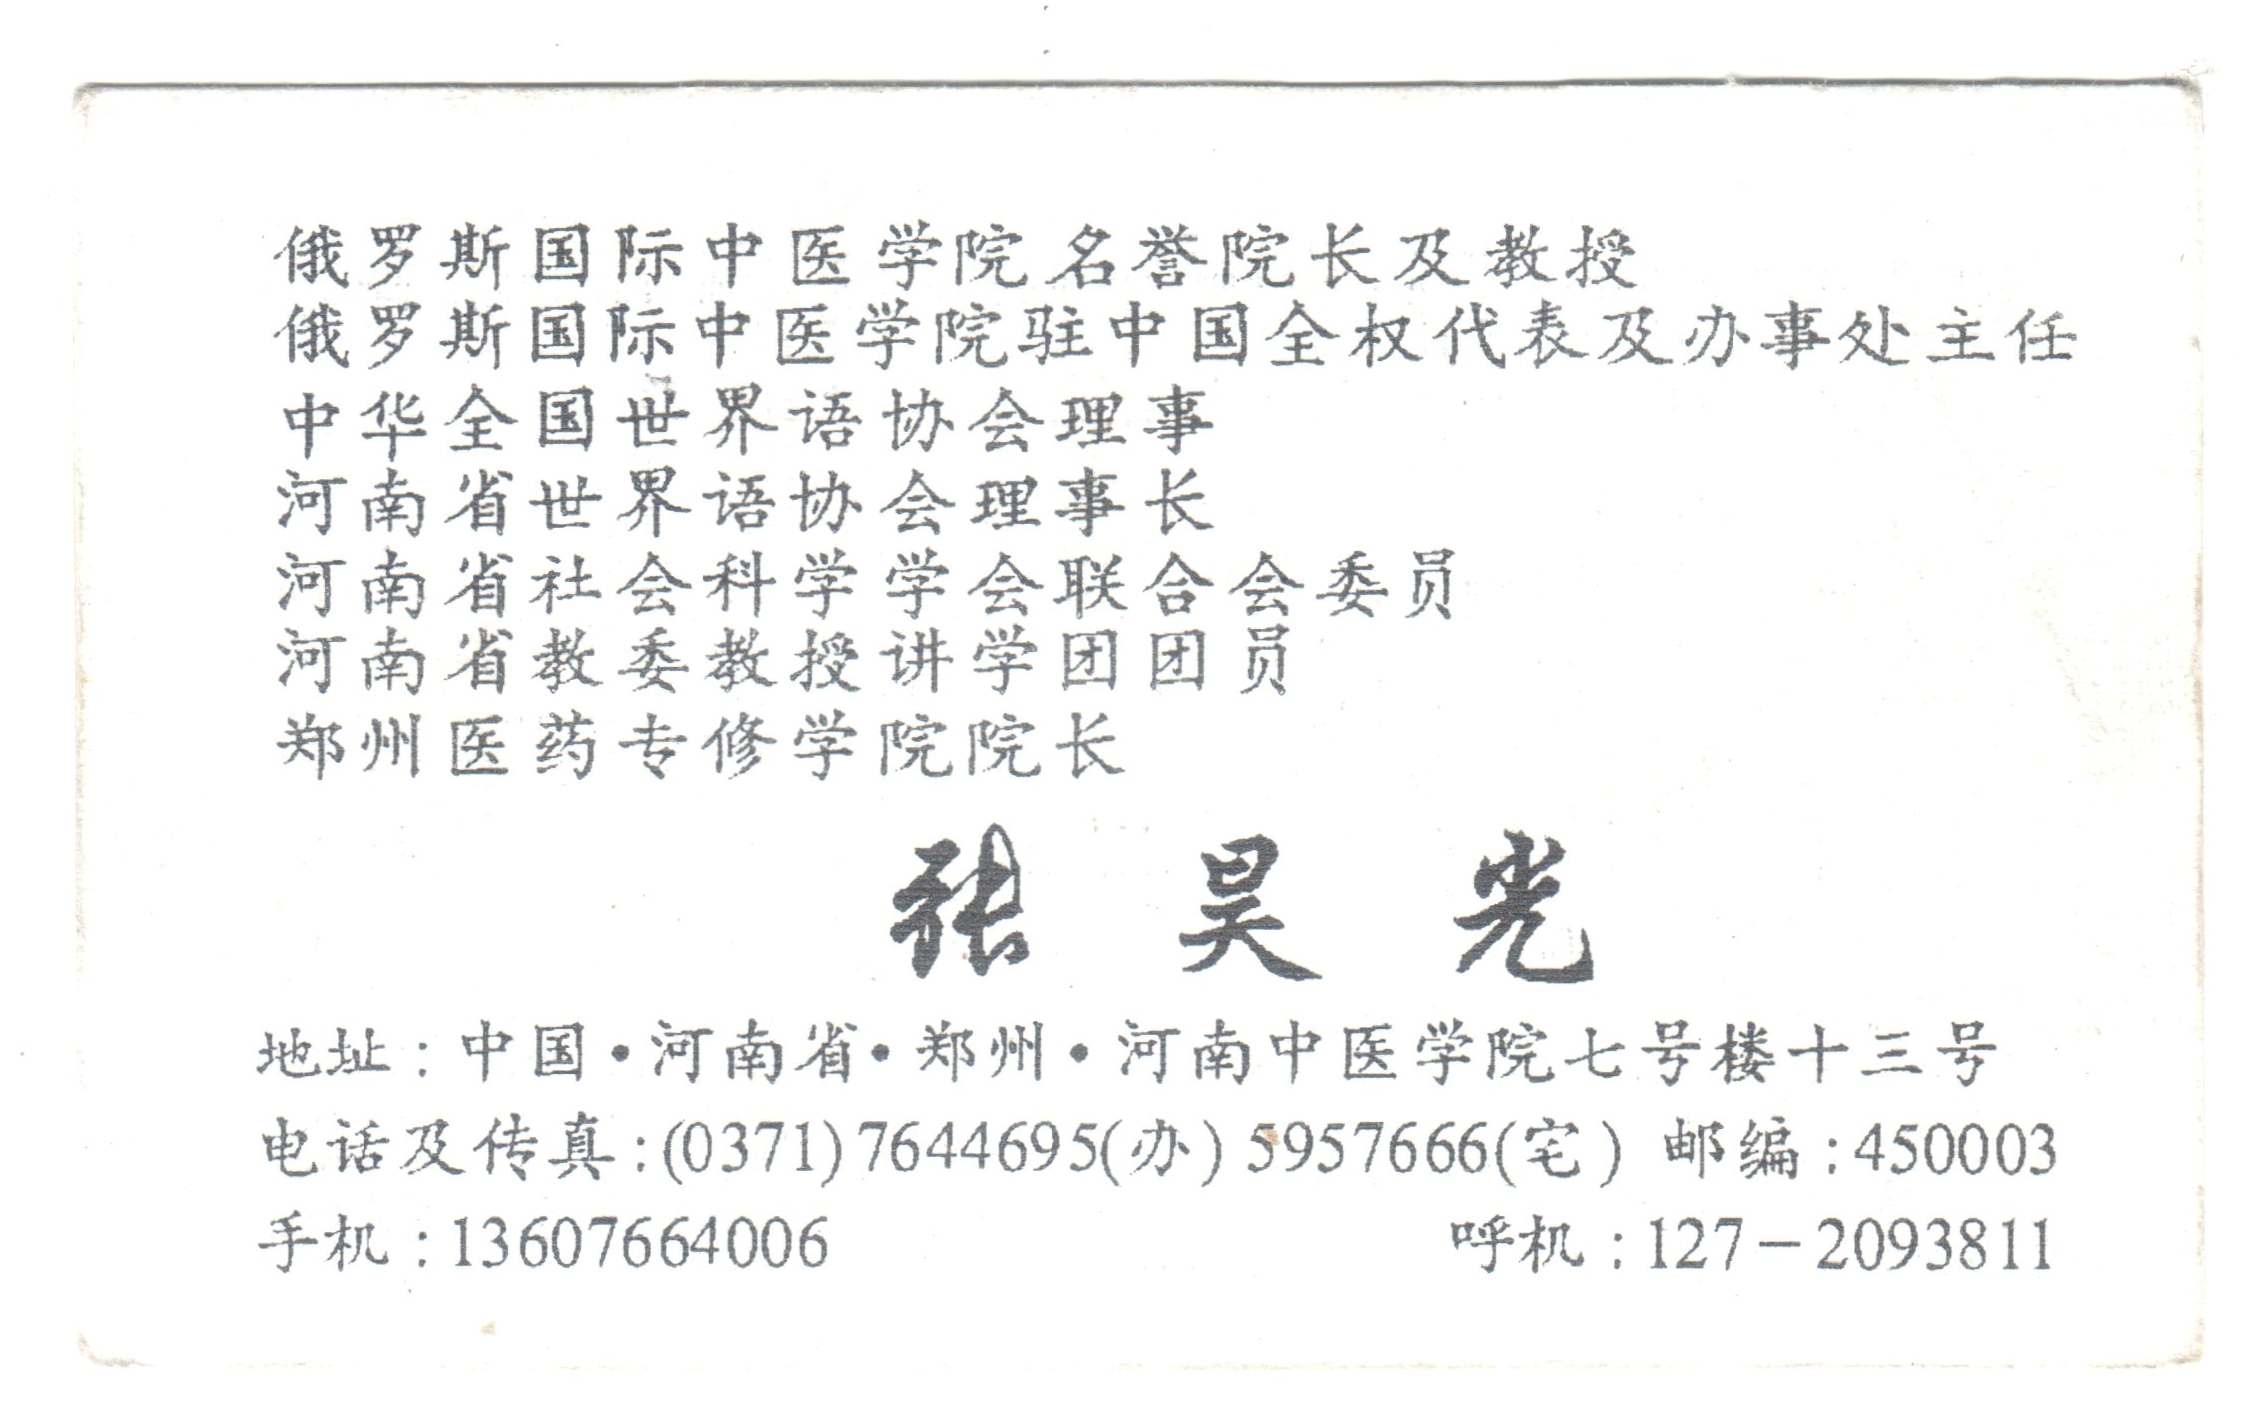 俄罗斯国际中医学院名誉院长及教授
俄罗斯国际中医学院驻中国全权代表及办事处主任
中华全国世界语协会理事
河南省世界语协会理事长
河南省社会科学学会联合会委员
河南省教委教授讲学团团员
郑州医药专修学院院长
张昊光
地址:中国·河南省·郑州·河南中医学院七号楼十三号
电话及传真:(0371)7644695(办)5957666(宅) 邮编:450003
手机:13607664006 呼机:127-2093811